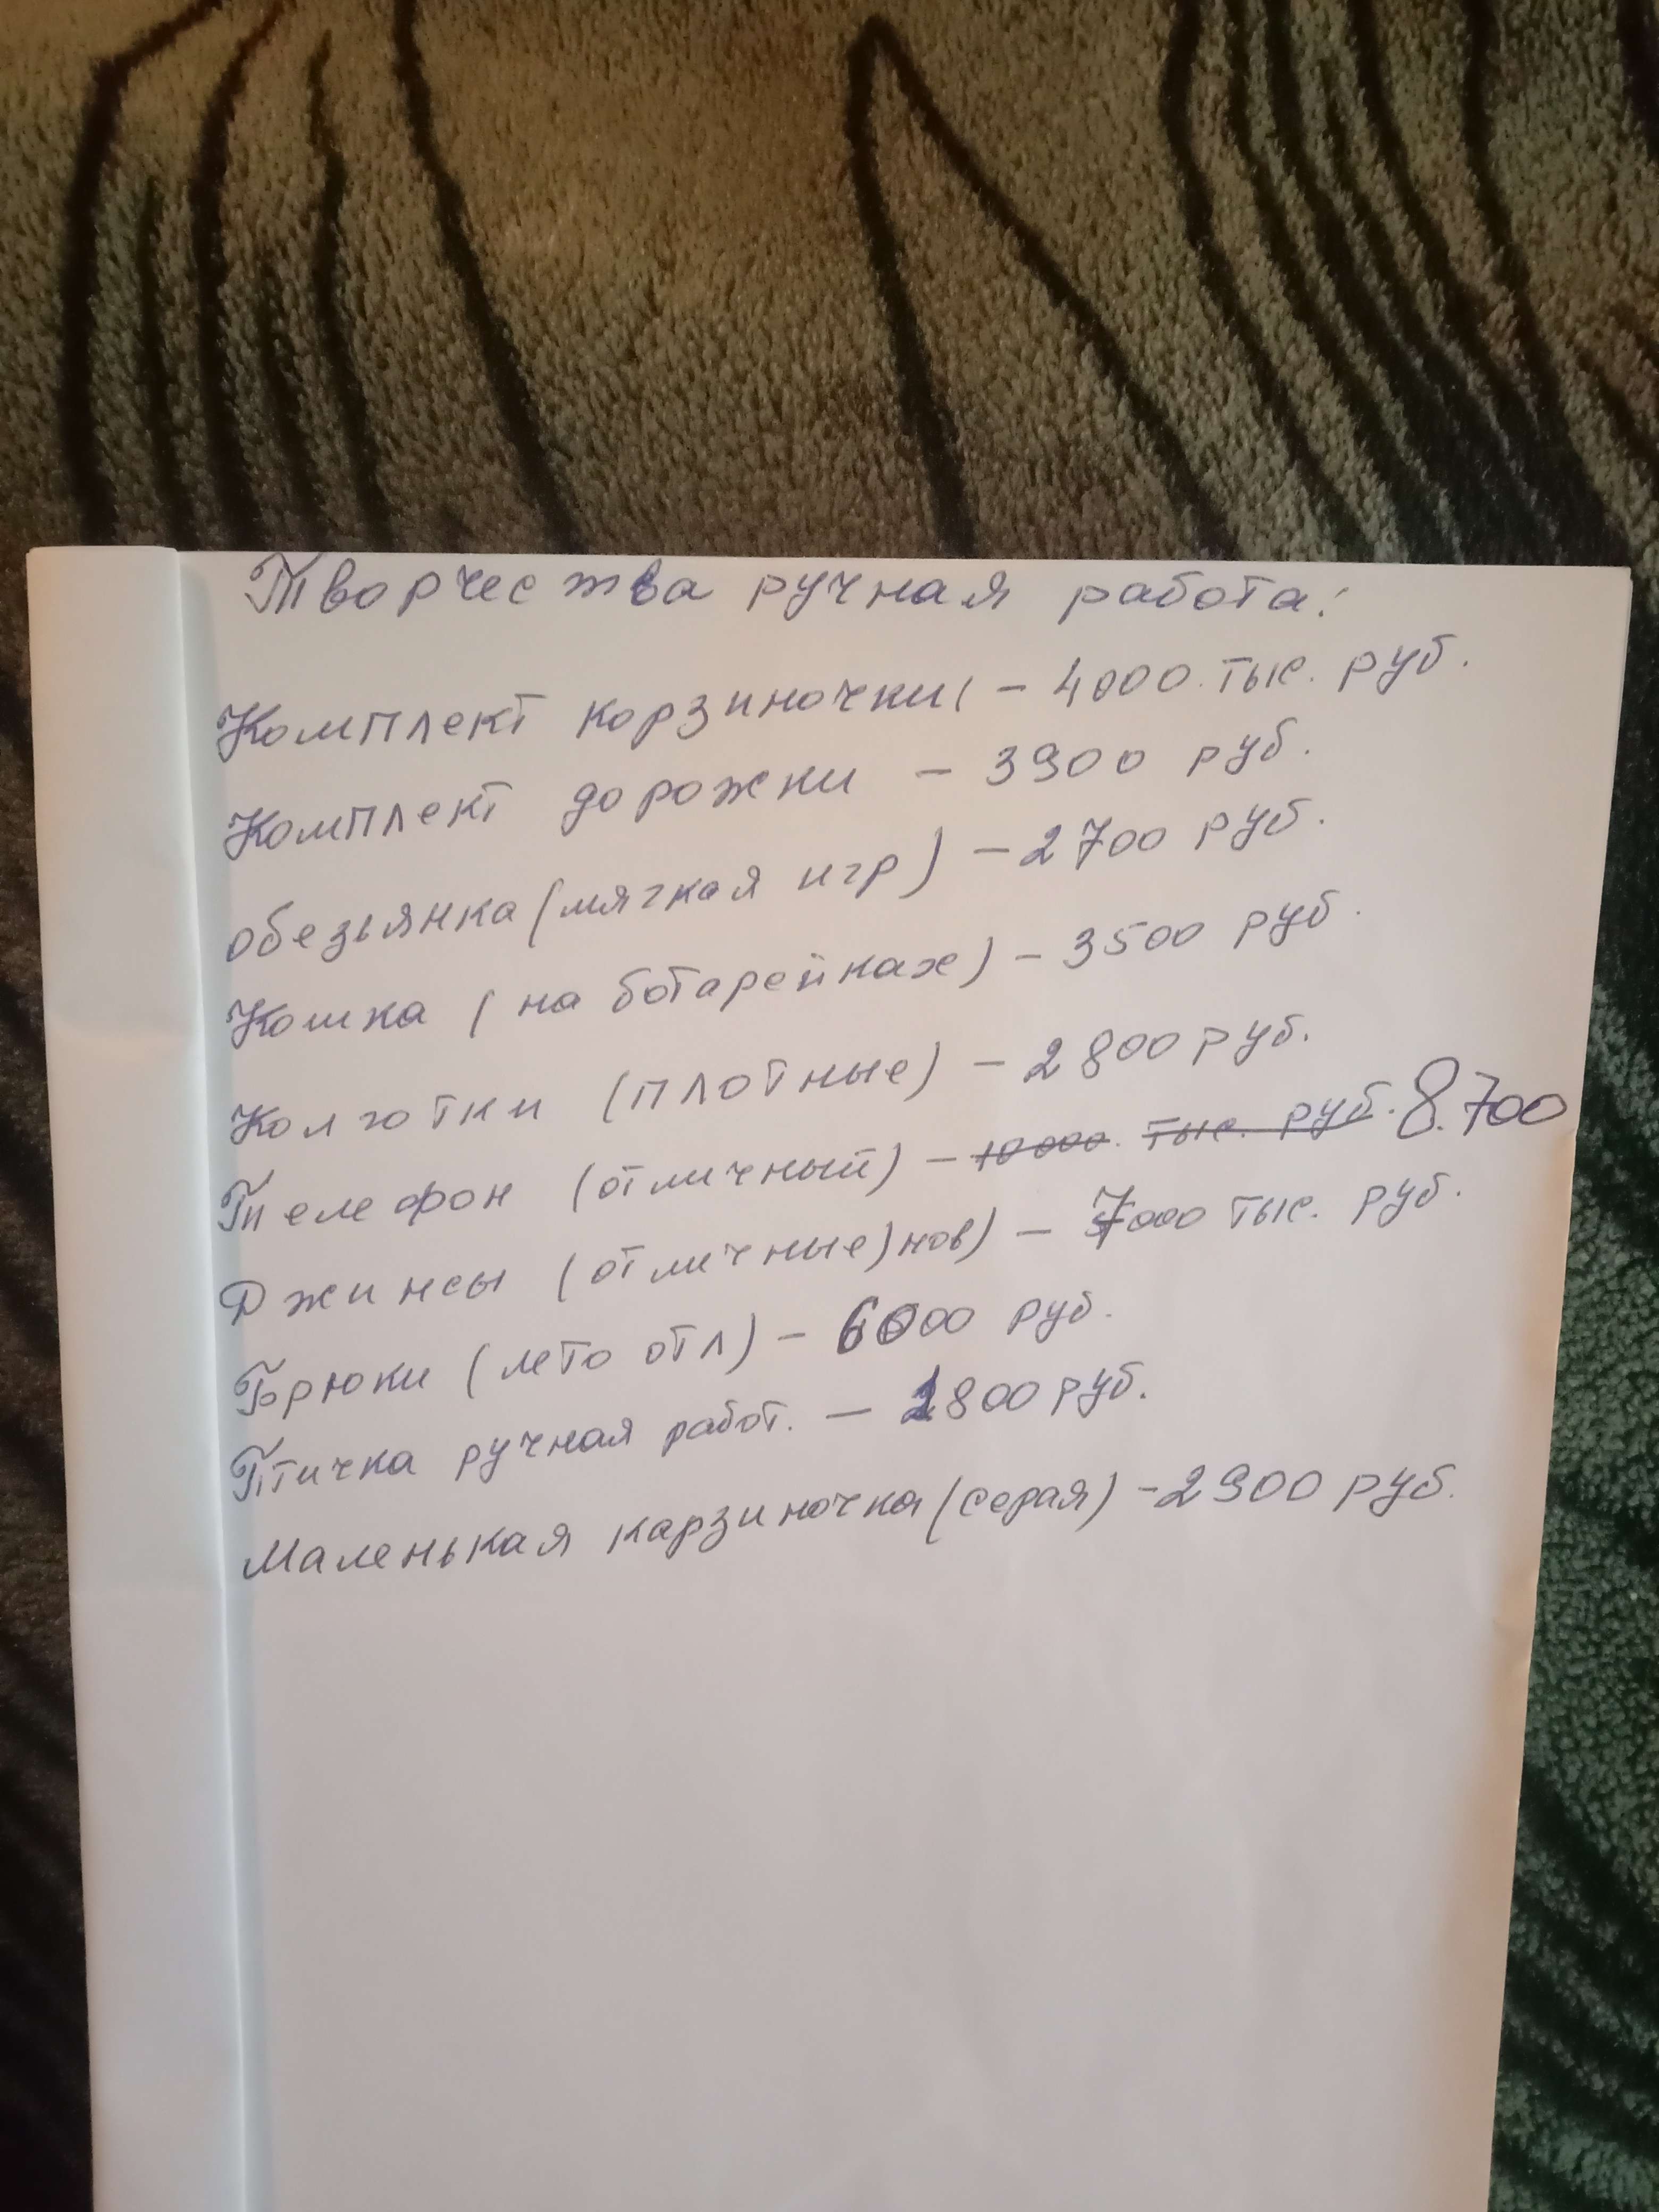 Творчества ручная работа:
Комплект корзиночки - 4000. тыс. руб.
Комплект дорожки - 3900 руб.
обезьянка (мягкая игр) - 2700 руб.
Кошка (на ботарейках) - 3500 руб.
Колготки (плотные) - 2800 руб.
Телефон (отличный) - 10 000. тыс. руб. 8.700
Джинсы (отличные) нов) - 7000 тыс. руб.
Брюки (лето отл) - 6000 руб.
Птичка ручная работ. - 1800 руб.
Маленькая карзиночка (серая) - 2900 руб.